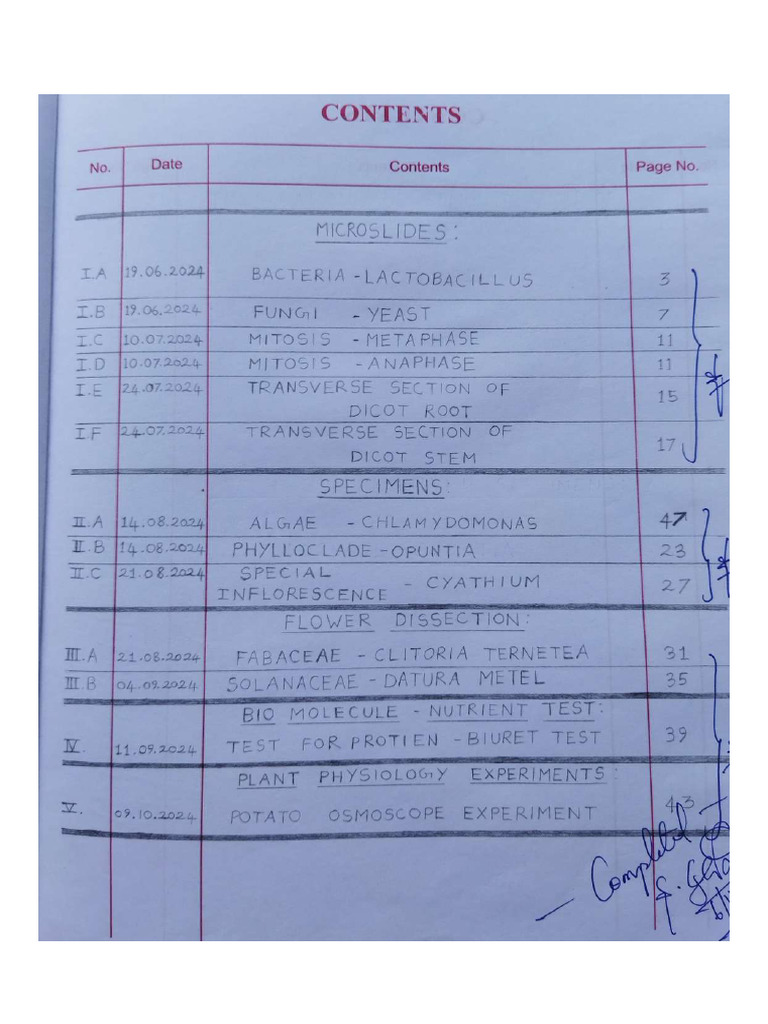 CONTENTS
No. Date Contents Page No.
MICROSLIDES:
I.A 19.06.2024 BACTERIA - LACTOBACILLUS 3
I.B 19.06.2024 FUNGI - YEAST 7
I.C 10.07.2024 MITOSIS - METAPHASE 11
I.D 10.07.2024 MITOSIS - ANAPHASE 11
I.E 24.07.2024 TRANSVERSE SECTION OF 15
DICOT ROOT
I.F 24.07.2024 TRANSVERSE SECTION OF 17
DICOT STEM
SPECIMENS:
II.A 14.08.2024 ALGAE - CHLAMYDOMONAS 47
II.B 14.08.2024 PHYLLOCLADE - OPUNTIA 23
II.C 21.08.2024 SPECIAL 27
INFLORESCENCE - CYATHIUM
FLOWER DISSECTION:
III.A 21.08.2024 FABACEAE - CLITORIA TERNETEA 31
III.B 04.09.2024 SOLANACEAE - DATURA METEL 35
BIO MOLECULE - NUTRIENT TEST:
IV. 11.09.2024 TEST FOR PROTIEN - BIURET TEST 39
PLANT PHYSIOLOGY EXPERIMENTS:
V. 09.10.2024 POTATO OSMOSCOPE EXPERIMENT 43
Completed